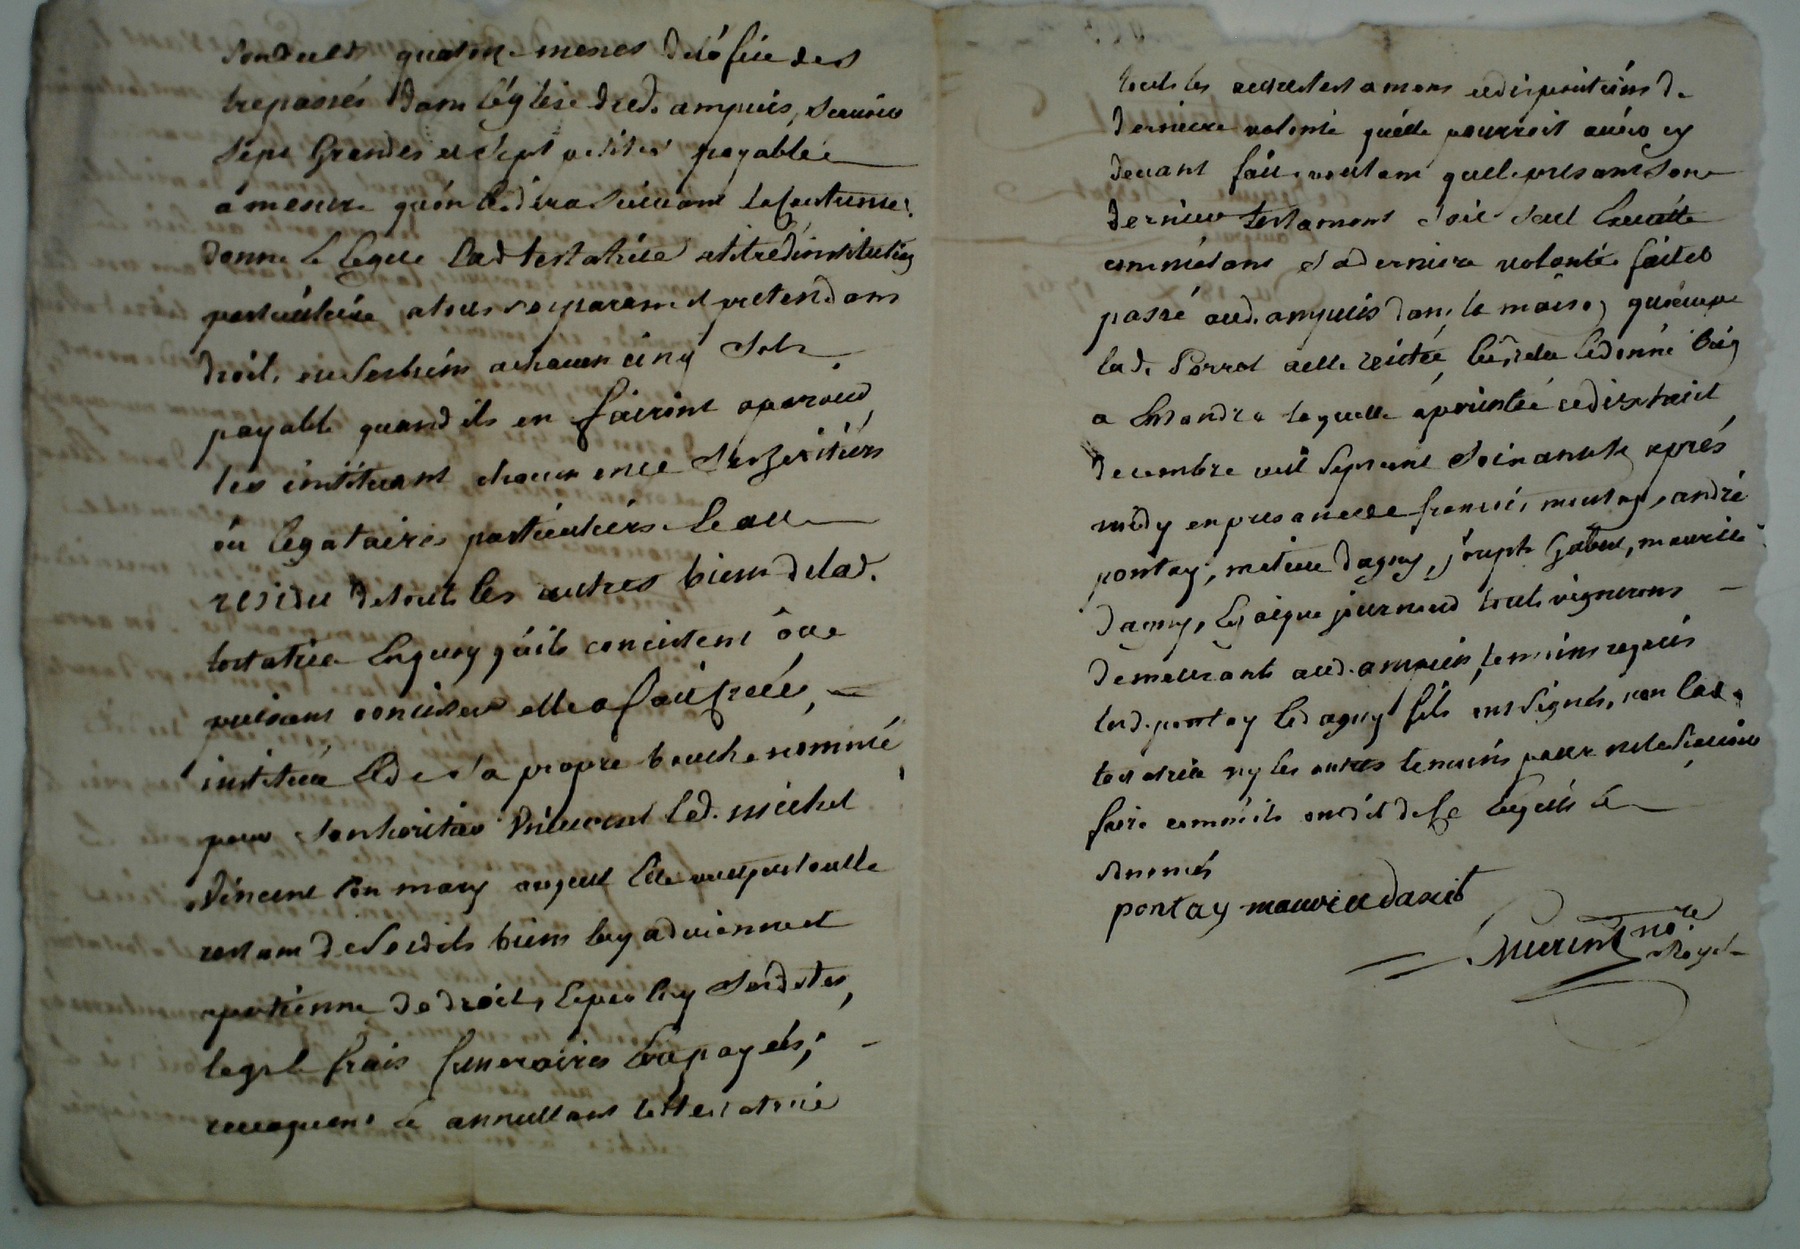 quatorze messes de lofice des
trepassés dans léglise dud. ampuis, scavoir
sept Grandes et sept petites payables
a mesure quon les dira suivant la coutume,
donne & legue lad testatrice a titre dinstitution
particuliere a tous ses parans et pretendans
droit, en a chacun cinq sols
payable quand ils en fairont aparoir,
les instituant chacun en ce ses heritiers
ou legataires particuliers & au
residu de tous les autres biens de lad.
testatrice en quoy quils concistent ou
puissent concister elle a fait, créé,
institué & de sa propre bouche nommé
pour son heritier universel led. michel
vincent son mary auquel elle veut que toutle
restant de sesdits biens luy advienne et
apartienne de droit, apres ses dettes,
legs & frais funeraires payés;
revoquant & annullant lad testatrice
touts les autres testamens et dispositions de
derniere volonté quelle pourroit avoir cy
devant fait voulant que le presant son
dernier testament soit seul executé
comme etant sa derniere volonté fait et
passé aud. ampuis dans la maison quoccupe
lad. Perrot a elle recité, & donné bien
a entendre le dixhuit
decembre mil sept cent soixante apres
midy en presance de francois montag, andré
pontay, dagny, joseph Gabert, maurice
dagny, journoud touts vignerons
demeurants aud. ampuis, temoins requis
led. pontay & dagny fils ont signés, non lad.
testatrice ny les autres temoins pour ne le scavoir
faire comme ils ont dit de ce enquis &
sommés
pontay maurice danit
no.re
Royal